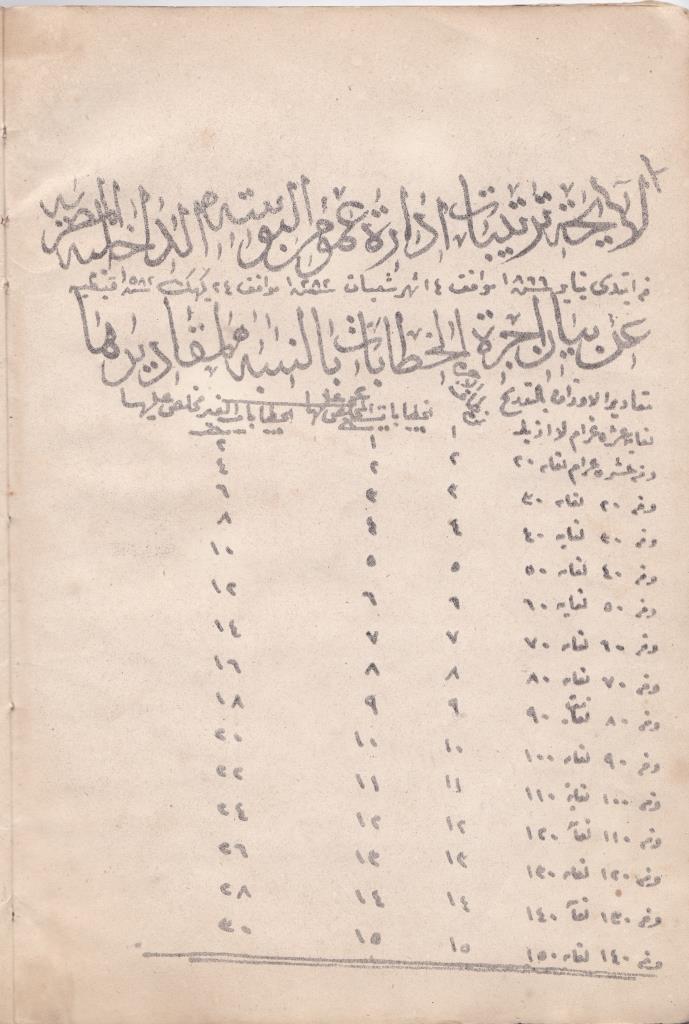 لايحة ترتيبات ادارة عموم البوسته الداخليه المصريه
من ابتدى يناير ١٨٦٦ موافق ١٤ شهر شعبان ١٢٨٢ موافق ٢٤ كيهك ١٥٨٢ قبطيه
عن بيان اجرة الخطابات بالنسبه لمقاديرها
مقادير الاوزان الاجره خطابات المخلص عليها الخطابات الغير مخلص عليها
لغاية عشره غرام لا ازيد ١ ١ ٢
ومن عشره غرام لغايه ٢٠ ٢ ٢ ٤
ومن ٢٠ لغايه ٣٠ ٣ ٣ ٦
ومن ٣٠ لغايه ٤٠ ٤ ٤ ٨
ومن ٤٠ لغايه ٥٠ ٥ ٥ ١٠
ومن ٥٠ لغايه ٦٠ ٦ ٦ ١٢
ومن ٦٠ لغايه ٧٠ ٧ ٧ ١٤
ومن ٧٠ لغايه ٨٠ ٨ ٨ ١٦
ومن ٨٠ لغاية ٩٠ ٩ ٩ ١٨
ومن ٩٠ لغايه ١٠٠ ١٠ ١٠ ٢٠
ومن ١٠٠ لغاية ١١٠ ١١ ١١ ٢٢
ومن ١١٠ لغاية ١٢٠ ١٢ ١٢ ٢٤
ومن ١٢٠ لغايه ١٣٠ ١٣ ١٣ ٢٦
ومن ١٣٠ لغاية ١٤٠ ١٤ ١٤ ٢٨
ومن ١٤٠ لغايه ١٥٠ ١٥ ١٥ ٣٠